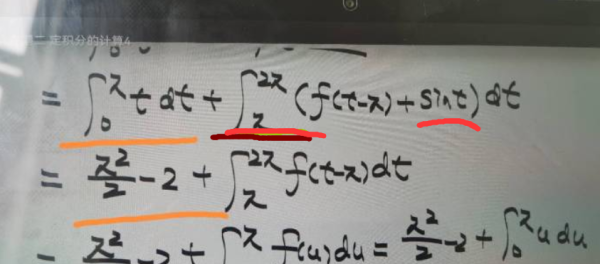 二 定积分的计算4
= ∫₀^π t dt + ∫_π^2π (f(t-π)+sint) dt
= π²/2 - 2 + ∫_π^2π f(t-π)dt
= π²/2 - 2 + ∫^π f(u)du = π²/2 - 2 + ∫₀^π u du